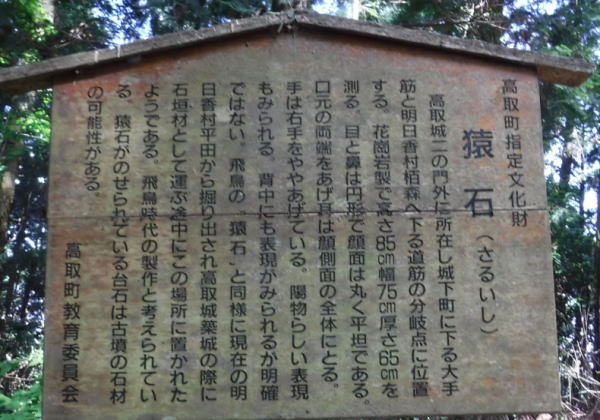 高取町指定文化財
猿石（さるいし）
高取城二の門外に所在し城下町に下る大手
筋と明日香村栢森へ下る道筋の分岐点に位置
する。花崗岩製で高さ85cm幅75cm厚さ65cmを
測る。目と鼻は円形で顔面は丸く平坦である。
口元の両端をあげ耳は顔側面の全体にとる。
手は右手をややあげている。陽物らしい表現
もみられる。背中にも表現がみられるが明確
ではない。飛鳥の「猿石」と同様に現在の明
日香村平田から掘り出され高取城築城の際に
石垣材として運ぶ途中にこの場所に置かれた
ようである。飛鳥時代の製作と考えられてい
る。猿石がのせられている台石は古墳の石材
の可能性がある。
高取町教育委員会